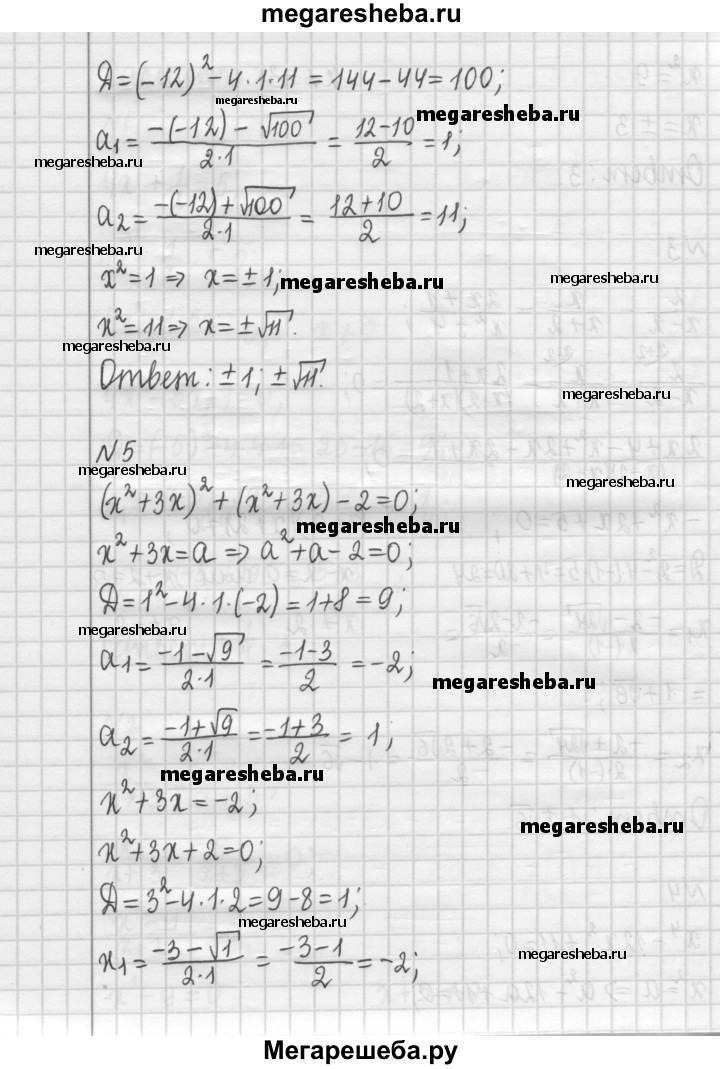 megaresheba.ru
Д=(-12)²-4·1·11=144-44=100;
megaresheba.ru
a₁=(-(-12)-√100)/(2·1)=(12-10)/2=1;
megaresheba.ru
megaresheba.ru
a₂=(-(-12)+√100)/(2·1)=(12+10)/2=11;
megaresheba.ru
megaresheba.ru
x²=1 ⇒ x=±1;
megaresheba.ru
megaresheba.ru
x²=11 ⇒ x=±√11.
megaresheba.ru
Ответ: ±1; ±√11.
megaresheba.ru
N5
megaresheba.ru
megaresheba.ru
(x²+3x)²+(x²+3x)-2=0;
megaresheba.ru
x²+3x=a ⇒ a²+a-2=0;
Д=1²-4·1·(-2)=1+8=9;
megaresheba.ru
megaresheba.ru
a₁=(-1-√9)/(2·1)=(-1-3)/2=-2;
megaresheba.ru
a₂=(-1+√9)/(2·1)=(-1+3)/2=1;
megaresheba.ru
x²+3x=-2;
megaresheba.ru
x²+3x+2=0;
Д=3²-4·1·2=9-8=1;
megaresheba.ru
x₁=(-3-√1)/(2·1)=(-3-1)/2=-2;
megaresheba.ru
megaresheba.ru
Мегарешеба.ру